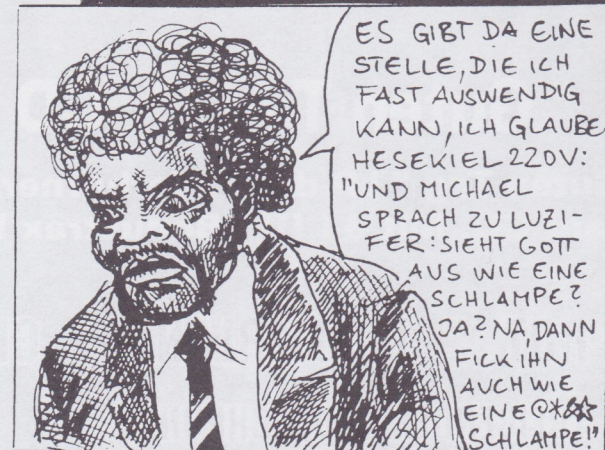 ES GIBT DA EINE
STELLE, DIE ICH
FAST AUSWENDIG
KANN, ICH GLAUBE
HESEKIEL 220V:
"UND MICHAEL
SPRACH ZU LUZI-
FER: SIEHT GOTT
AUS WIE EINE
SCHLAMPE?
JA? NA, DANN
FICK IHN
AUCH WIE
EINE @*&☆
SCHLAMPE!"